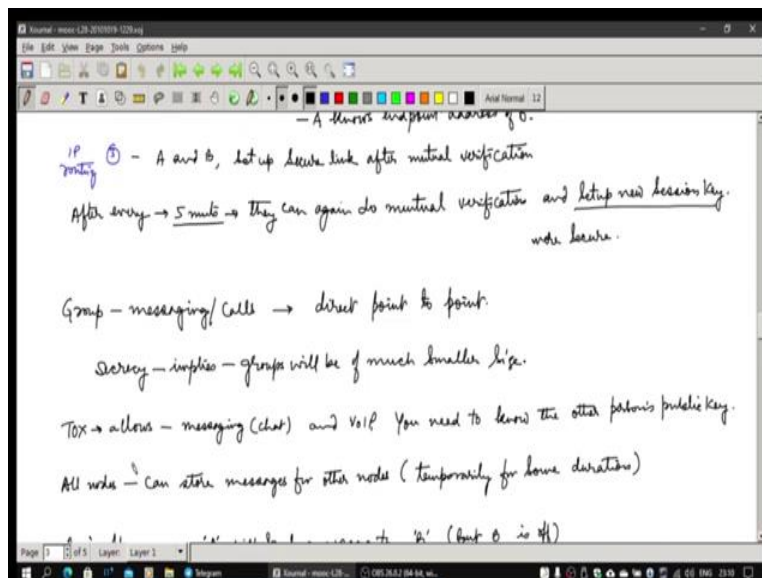 Xournal - mooc-L28-20201019-1229.xoj
File Edit View Page Tools Options Help
Arial Normal 12
- A knows endpoint address of B.
IP routing ③ - A and B, set up secure link after mutual verification
After every → 5 mute → they can again do mutual verification and setup new session key.
more secure.
Group - messaging/calls → direct point to point.
Secrecy - implies - groups will be of much smaller size.
TOX → allows - messaging (chat) and VOIP You need to know the other person's public key.
All nodes - can store messages for other nodes (temporarily for some duration)
(But B is off)
Page 3 of 5 Layer: Layer 1
Telegram Xournal - mooc-L28-... OBS 26.0.2 (64-bit, wi... ENG 23:10